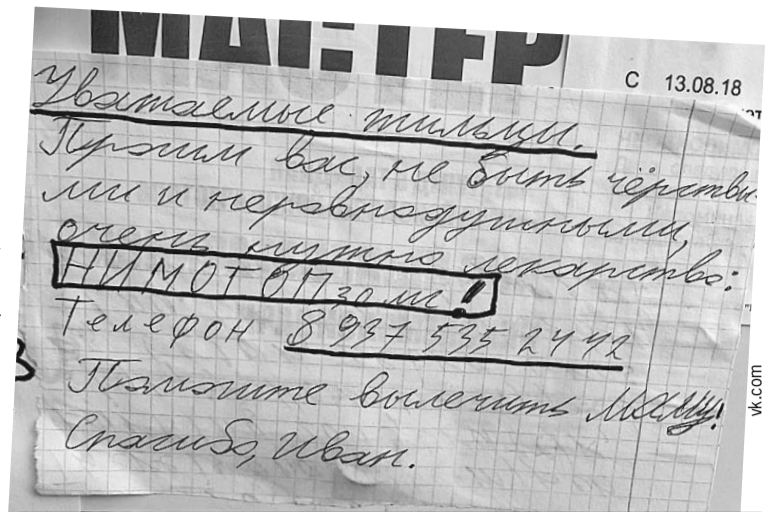 МАСТЕР
С 13.08.18
Уважаемые жильцы.
Просим вас, не быть чёрствы-
ми и неравнодушными,
очень нужно лекарство:
НИМОТОП 30 мг!
Телефон 8 937 535 24 42
Помогите вылечить маму!
Спасибо, Иван.
vk.com